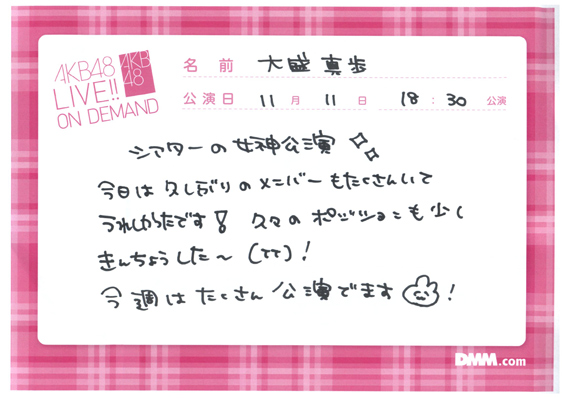 AKB48
LIVE!!
ON DEMAND
AKB
48
名前 大盛真歩
公演日 11月11日 18:30公演
シアターの女神公演
今日は久しぶりのメンバーもたくさんいて
うれしかったです! 久々のポジションも少し
きんちょうした〜(てて)!
今週はたくさん公演でます!
DMM.com